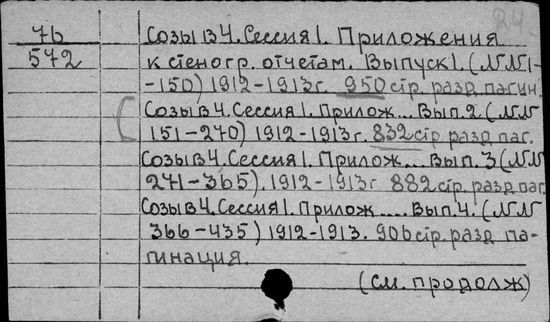 24
76
572
Созыв 4. Сессия 1. Приложения
к стеногр. отчетам. Выпуск 1. (№№1-
-150) 1912-1913г. 950 стр. разд. пагин.
Созыв 4. Сессия 1. Прилож... Вып. 2. (№№
151-270) 1912-1913г. 832 стр. разд. паг.
Созыв 4. Сессия 1. Прилож... Вып. 3 (№№
271-365). 1912-1913г 882 стр. разд. паг.
Созыв 4. Сессия 1. Прилож.... Вып. 4. (№№
366-435) 1912-1913. 906 стр. разд па-
гинация.
(См. продолж)